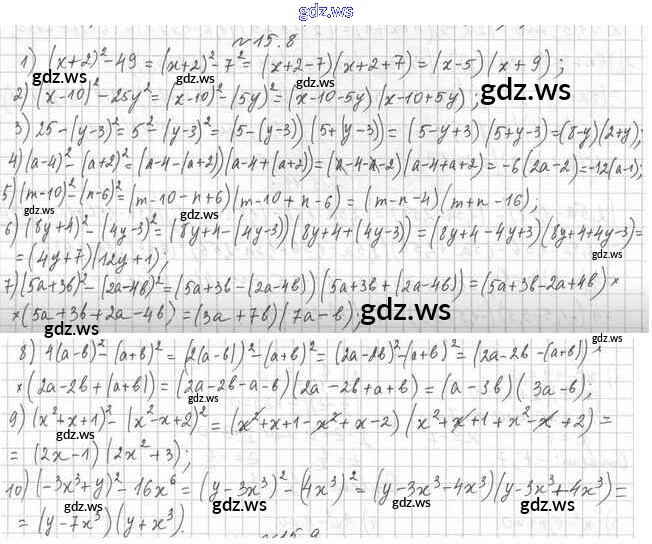 gdz.ws
№15.8
1) (x+2)²-49 = (x+2)²-7² = (x+2-7)(x+2+7) = (x-5)(x+9);
gdz.ws gdz.ws
2) (x-10)²-25y² = (x-10)²-(5y)² = (x-10-5y)(x-10+5y);
gdz.ws
3) 25-(y-3)² = 5²-(y-3)² = (5-(y-3))(5+(y-3)) = (5-y+3)(5+y-3) = (8-y)(2+y);
gdz.ws
4) (a-4)²-(a+2)² = (a-4-(a+2))(a-4+(a+2)) = (a-4-a-2)(a-4+a+2) = -6(2a-2) = -12(a-1);
5) (m-10)²-(n-6)² = (m-10-n+6)(m-10+n-6) = (m-n-4)(m+n-16);
gdz.ws gdz.ws
6) (8y+4)²-(4y-3)² = (8y+4-(4y-3))(8y+4+(4y-3)) = (8y+4-4y+3)(8y+4+4y-3) =
= (4y+7)(12y+1);
gdz.ws
7) (5a+3b)²-(2a-4b)² = (5a+3b-(2a-4b))(5a+3b+(2a-4b)) = (5a+3b-2a+4b)×
×(5a+3b+2a-4b) = (3a+7b)(7a-b);
gdz.ws gdz.ws
gdz.ws
8) 4(a-b)²-(a+b)² = (2(a-b))²-(a+b)² = (2a-2b)²-(a+b)² = (2a-2b-(a+b))×
×(2a-2b+(a+b)) = (2a-2b-a-b)(2a-2b+a+b) = (a-3b)(3a-b);
9) (x²+x+1)²-(x²-x+2)² = (x²+x+1-x²+x-2)(x²+x+1+x²-x+2) =
gdz.ws gdz.ws
= (2x-1)(2x²+3);
gdz.ws
10) (-3x³+y)²-16x⁶ = (y-3x³)²-(4x³)² = (y-3x³-4x³)(y-3x³+4x³) =
gdz.ws gdz.ws
= (y-7x³)(y+x³).
gdz.ws
№15.9